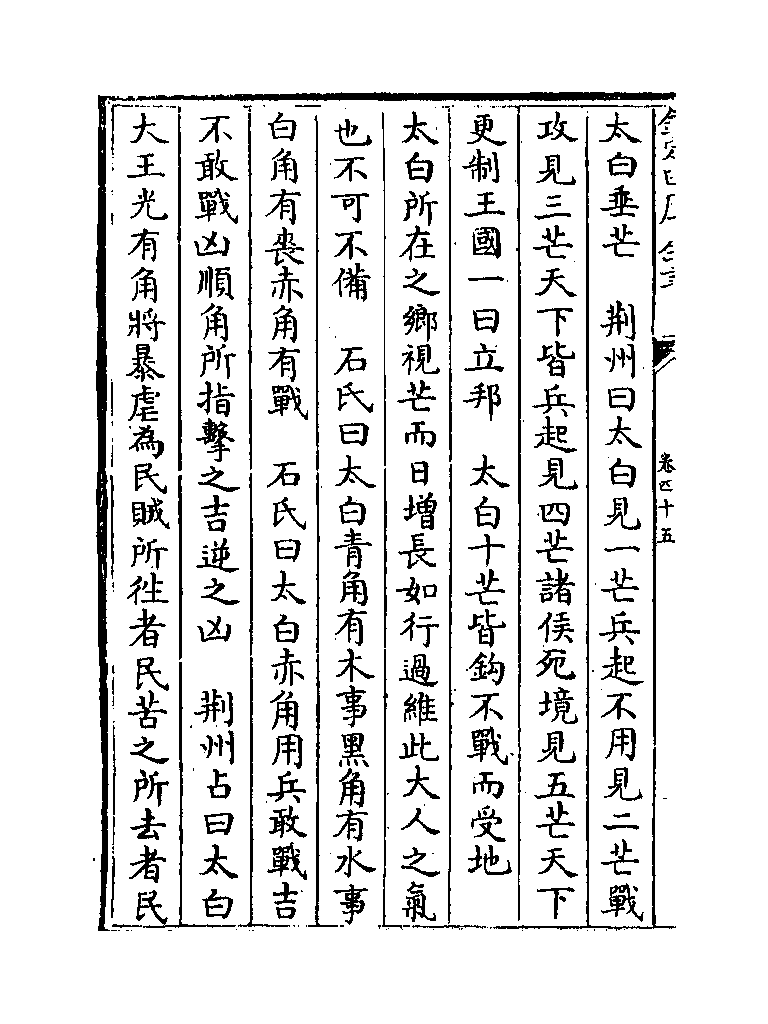 卷四十五
太白垂芒　荆州曰太白見一芒兵起不用見二芒戰
攻見三芒天下皆兵起見四芒諸侯死境見五芒天下
更制王國一曰立邦　太白十芒皆鈎不戰而受地
太白所在之鄉視芒而日增長如行過維此大人之氣
也不可不備　石氏曰太白青角有木事黑角有水事
白角有喪赤角有戰　石氏曰太白赤角用兵敢戰吉
不敢戰凶順角所指擊之吉逆之凶　荆州占曰太白
大王光有角將暴虐為民賊所徃者民苦之所去者民